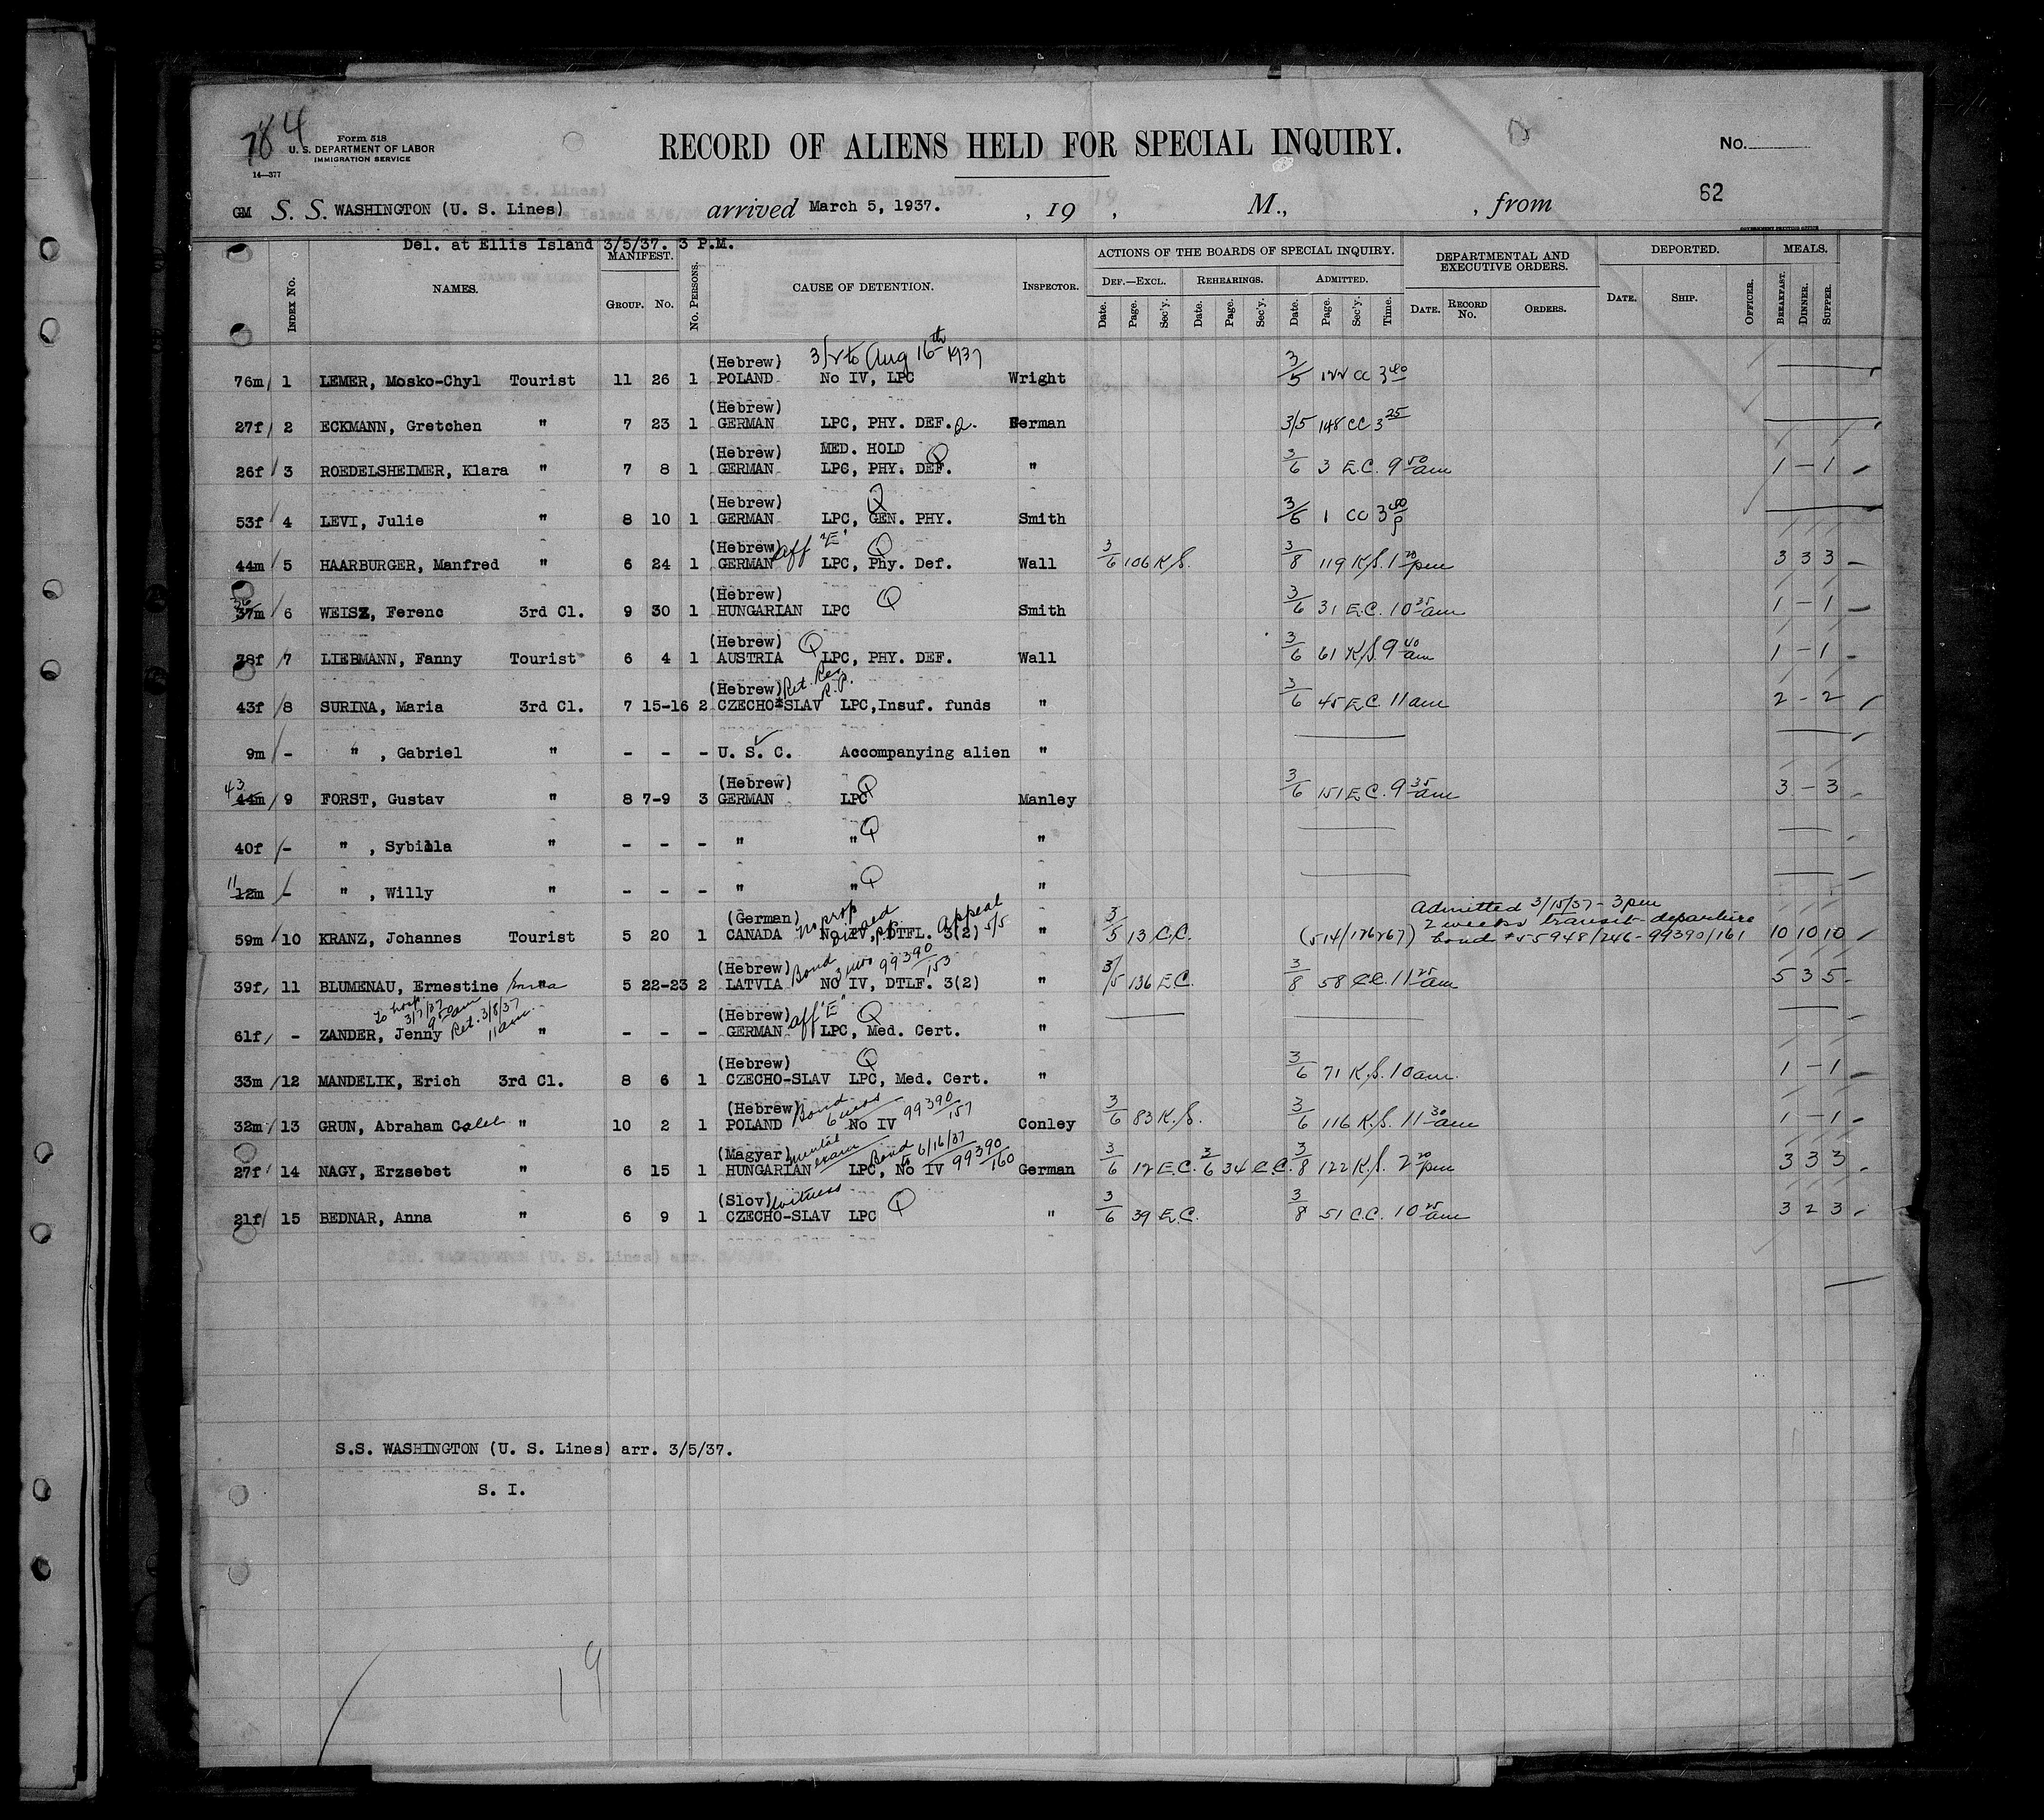 784
Form 518
U. S. DEPARTMENT OF LABOR
IMMIGRATION SERVICE
14—377
RECORD OF ALIENS HELD FOR SPECIAL INQUIRY.
No.
62
GM S. S. WASHINGTON (U. S. Lines) arrived March 5, 1937. , 19 , M., , from
GOVERNMENT PRINTING OFFICE
Del. at Ellis Island 3/5/37. 3 P.M.
INDEX No. NAMES. MANIFEST. GROUP. No. No. PERSONS. CAUSE OF DETENTION. INSPECTOR. ACTIONS OF THE BOARDS OF SPECIAL INQUIRY. DEPARTMENTAL AND EXECUTIVE ORDERS. DEPORTED. MEALS.
DEF.—EXCL. REHEARINGS. ADMITTED.
Date. Page. Sec'y. Date. Page. Sec'y. Date. Page. Sec'y. Time. DATE. RECORD No. ORDERS. DATE. SHIP. OFFICER. BREAKFAST. DINNER. SUPPER.
(Hebrew) to Aug 16th 1937
76m 1 LEMER, Mosko-Chyl Tourist 11 26 1 POLAND No IV, LPC Wright 3/5 122 CC 3 00
(Hebrew)
27f 2 ECKMANN, Gretchen " 7 23 1 GERMAN LPC, PHY. DEF. German 3/5 148 CC 3 25
(Hebrew) MED. HOLD Q
26f 3 ROEDELSHEIMER, Klara " 7 8 1 GERMAN LPC, PHY. DEF. " 3/6 3 E.C. 9 50 am 1 — 1
(Hebrew) Q
53f 4 LEVI, Julie " 8 10 1 GERMAN LPC, GEN. PHY. Smith 3/6 1 CC 3 00 p
(Hebrew) aff "E" Q
44m 5 HAARBURGER, Manfred " 6 24 1 GERMAN LPC, Phy. Def. Wall 3/6 106 K.S. 3/8 119 K.S. 1 20 pm 3 3 3
(Hebrew) Q
36 37m 6 WEISZ, Ferenc 3rd Cl. 9 30 1 HUNGARIAN LPC Smith 3/6 31 E.C. 10 35 am 1 — 1
(Hebrew) Q
38f 7 LIEBMANN, Fanny Tourist 6 4 1 AUSTRIA LPC, PHY. DEF. Wall 3/6 61 K.S. 9 40 am 1 — 1
(Hebrew) Ret. Res. R.P.
43f 8 SURINA, Maria 3rd Cl. 7 15-16 2 CZECHO-SLAV LPC, Insuf. funds " 3/6 45 E.C. 11 am 2 — 2
9m - " , Gabriel " - - - U. S. C. Accompanying alien "
(Hebrew) Q
43 44m 9 FORST, Gustav " 8 7-9 3 GERMAN LPC Manley 3/6 151 E.C. 9 35 am 3 — 3
40f - " , Sybilla " - - - " " Q "
11 12m - " , Willy " - - - " " Q "
(German) no prop Appeal 5/5 Admitted 3/15/37 - 3 pm
2 weeks transit - departure
59m 10 KRANZ, Johannes Tourist 5 20 1 CANADA No IV, DTFL. 3(2) " 3/5 13 C.C. (514/176267) bond # 55948/246 - 99390/161 10 10 10
(Hebrew) Bond 3 mos 99390/153
39f 11 BLUMENAU, Ernestine " 5 22-23 2 LATVIA No IV, DTLF. 3(2) " 3/5 136 E.C. 3/8 58 C.C. 11 25 am 5 3 5
to hosp. 3/7/37 9 50 am Ret. 3/8/37 11 am (Hebrew) aff "E" Q
61f - ZANDER, Jenny " - - - GERMAN LPC, Med. Cert. "
(Hebrew) Q
33m 12 MANDELIK, Erich 3rd Cl. 8 6 1 CZECHO-SLAV LPC, Med. Cert. " 3/6 71 K.S. 10 am 1 — 1
(Hebrew) Bond 6 mos 99390/157
32m 13 GRUN, Abraham Calel " 10 2 1 POLAND No IV Conley 3/6 83 K.S. 3/6 116 K.S. 11 30 am 1 — 1
(Magyar) mental exam Bond to 6/16/37 99390/160
27f 14 NAGY, Erzsebet " 6 15 1 HUNGARIAN LPC, No IV German 3/6 12 E.C. 3/6 34 C.C. 3/8 122 K.S. 2 20 pm 3 3 3
(Slov) Witness Q
21f 15 BEDNAR, Anna " 6 9 1 CZECHO-SLAV LPC " 3/6 39 E.C. 3/8 51 C.C. 10 25 am 3 2 3
S.S. WASHINGTON (U. S. Lines) arr. 3/5/37.
S. I.
19